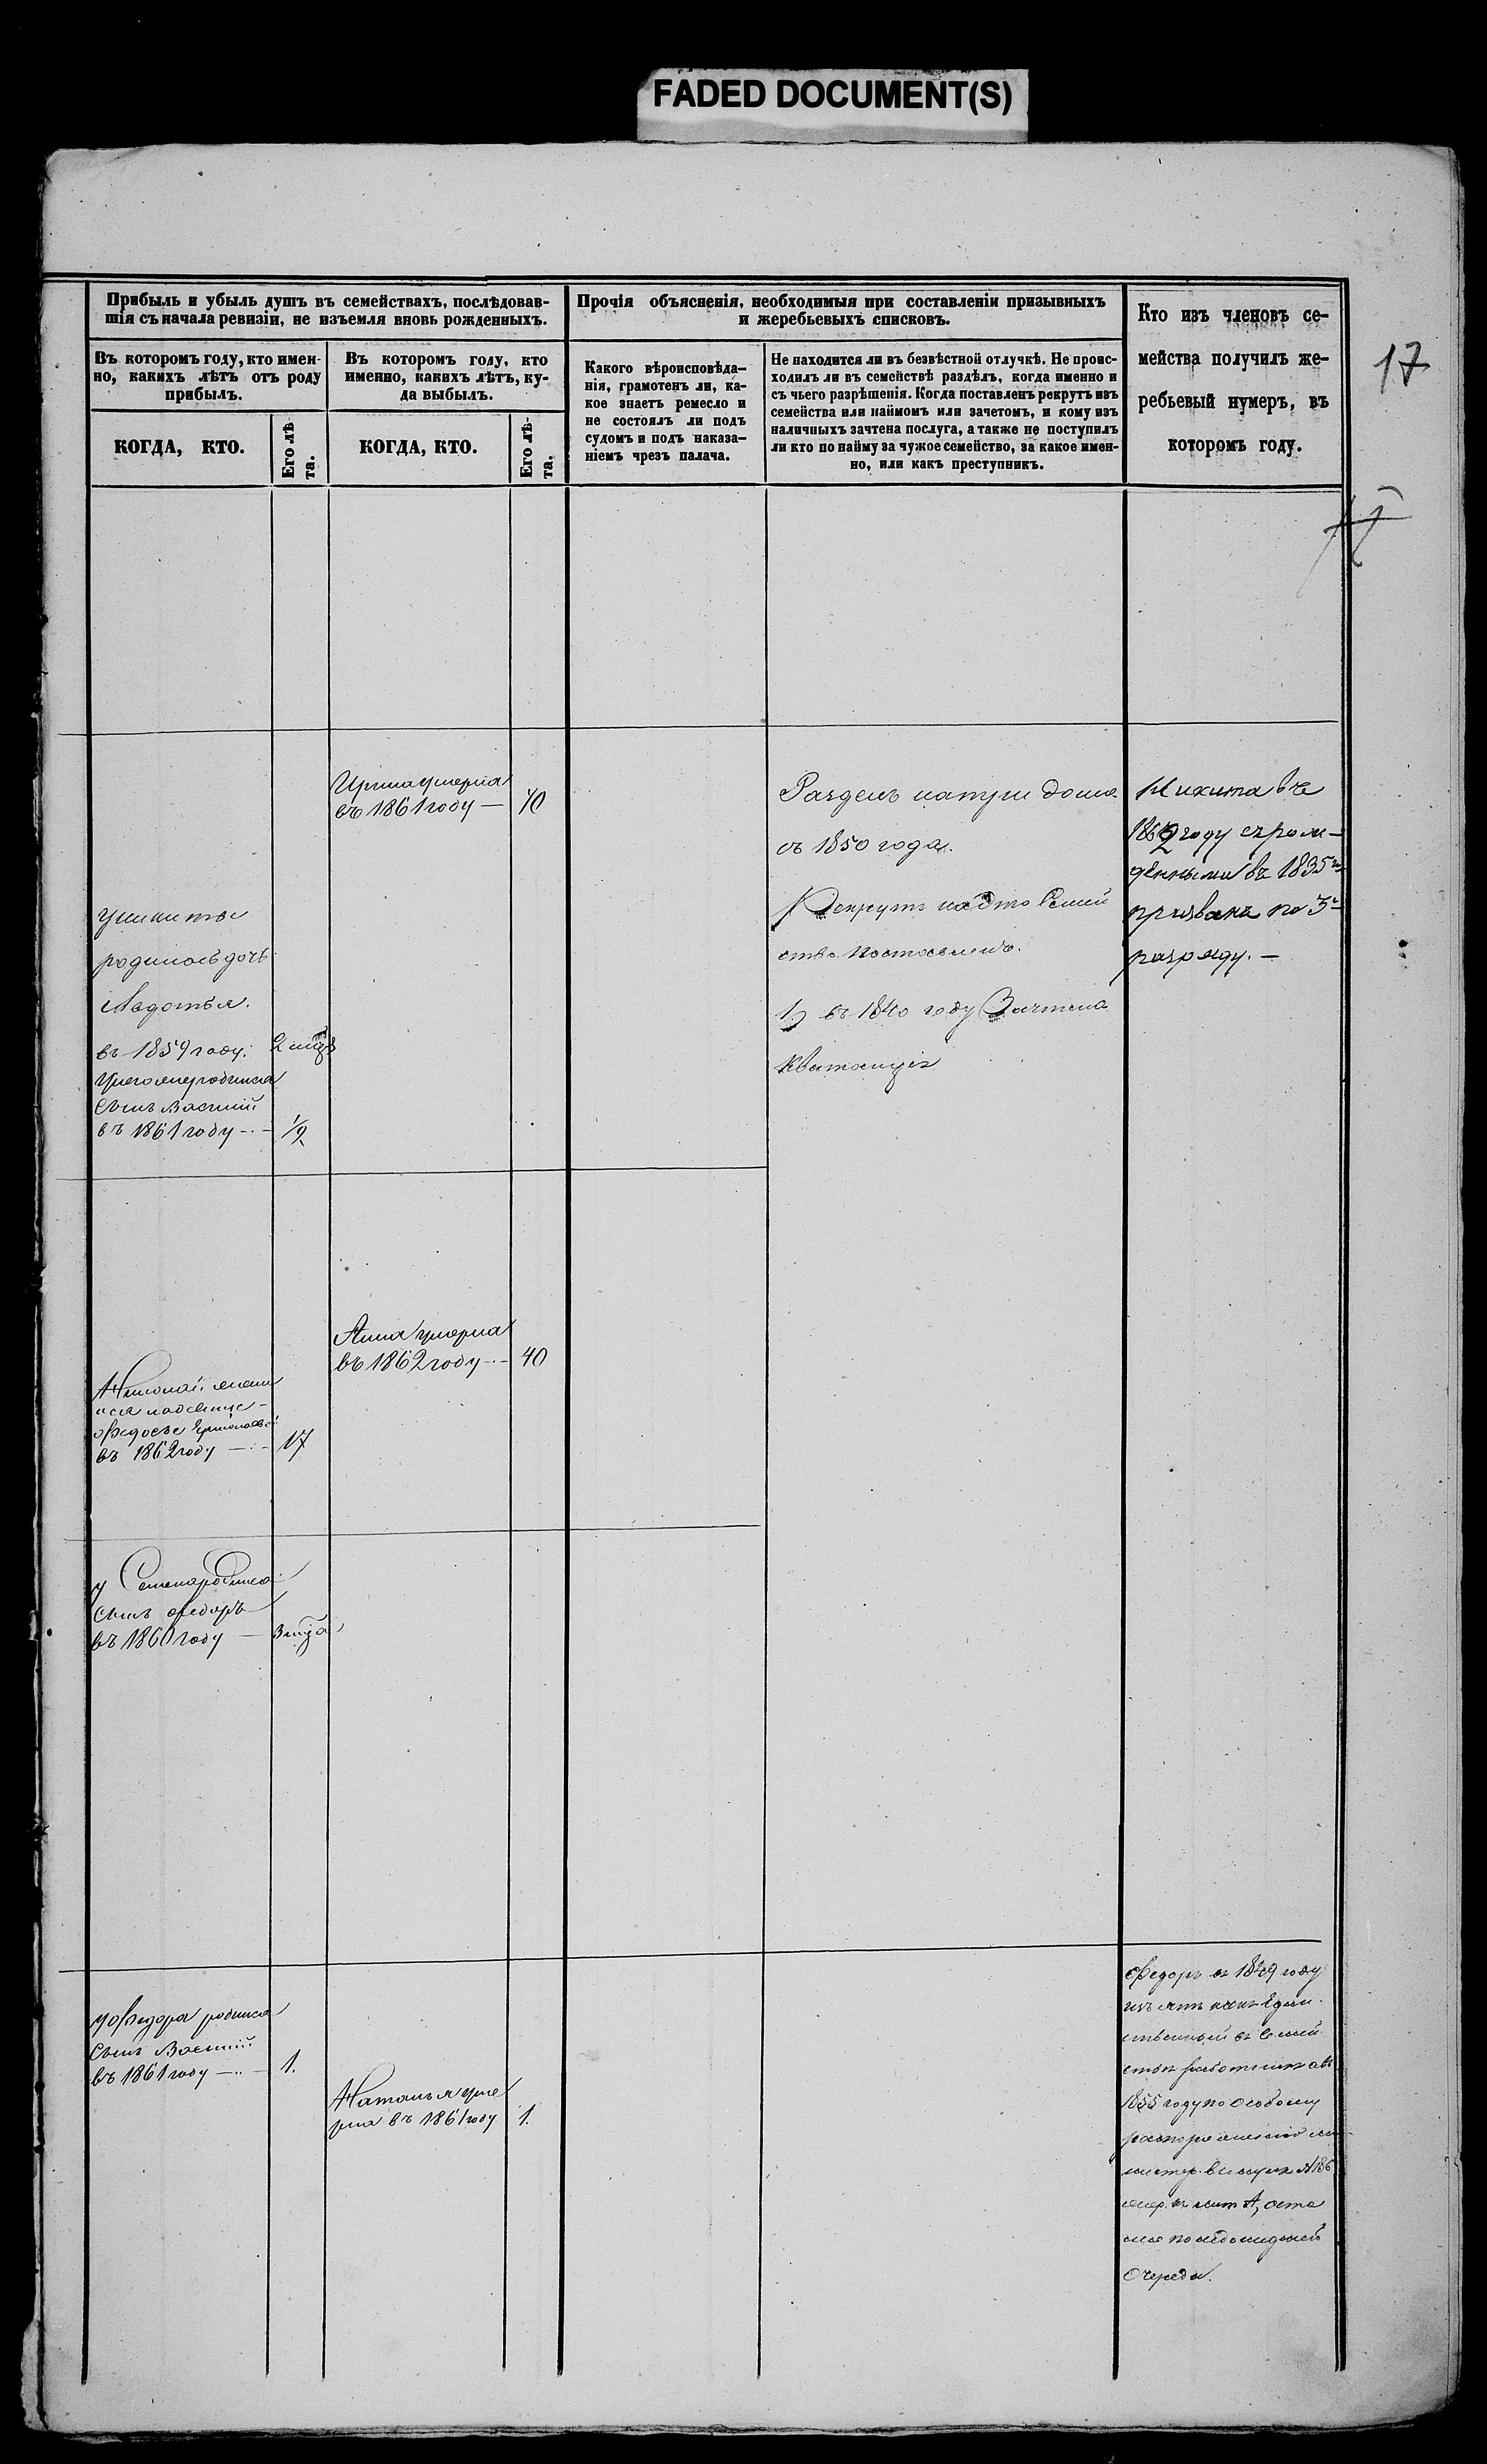 FADED DOCUMENT(S)
Прибыль и убыль душъ въ семействахъ, послѣдовав-
шія съ начала ревизіи, не изъемля вновь рожденныхъ.
Прочія объясненія, необходимыя при составленіи призывныхъ
и жеребьевыхъ списковъ.
Кто изъ членовъ се-
мейства получилъ же-
ребьевый нумеръ, въ
которомъ году.
17
Въ которомъ году, кто имен-
но, какихъ лѣтъ отъ роду
прибылъ.
Въ которомъ году, кто
именно, какихъ лѣтъ, ку-
да выбылъ.
Какого вѣроисповѣда-
нія, грамотенъ ли, ка-
кое знаетъ ремесло и
не состоялъ ли подъ
судомъ и подъ наказа-
ніемъ чрезъ палача.
Не находится ли въ безвѣстной отлучкѣ. Не проис-
ходилъ ли въ семействѣ раздѣлъ, когда именно и
съ чьего разрѣшенія. Когда поставленъ рекрутъ изъ
семейства или наймомъ или зачетомъ, и кому изъ
наличныхъ зачтена послуга, а также не поступилъ
ли кто по найму за чужое семейство, за какое имен-
но, или какъ преступникъ.
КОГДА, КТО.
Его лѣ
та.
КОГДА, КТО.
Его лѣ-
та.
умерла
въ 1861 году — 70
Разделъ натуги дома
съ 1850 года.
Рекрутъ на это Семей
ство поставленъ.
1) въ 1840 году Зачтена
Квитанція
Никита въ
1862 году съ рож-
денными въ 1835 г
призванъ по 3
разряду. —
у Никиты
родилась дочь
Авдотья.
въ 1859 году. 2
родился
сынъ Василій
въ 1861 году - . - 1/2
Анна умерла
въ 1862 году - . - 40
Николай
на девице
Федосье Ермолаевой
въ 1862 году — . — 17
у Семена родился
сынъ Федоръ
въ 1860 году — 3
у Федора родился
сынъ Василій
въ 1861 году — .. — 1.
Наталья уме
рла въ 1861 году 1.
Федоръ въ 1849 году
изъятъ какъ Един-
ственный въ Семей
стве работникъ а въ
1855 году по особому
распоряжению
А, оста
по недошедшей
Очереди.